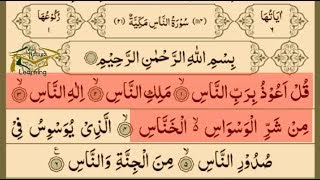 اٰيَاتُهَا ٦
(١١٤) سُوْرَةُ النَّاسِ مَكِّيَّةٌ (٢١)
رُكُوْعُهَا ١
Learning
بِسْمِ اللّٰهِ الرَّحْمٰنِ الرَّحِيْمِ
قُلْ اَعُوْذُ بِرَبِّ النَّاسِ ۙ١ مَلِكِ النَّاسِ ۙ٢ اِلٰهِ النَّاسِ ۙ٣
مِنْ شَرِّ الْوَسْوَاسِ ۙ٥ الْخَنَّاسِ ۙ٤ الَّذِيْ يُوَسْوِسُ فِيْ
صُدُوْرِ النَّاسِ ۙ٥ مِنَ الْجِنَّةِ وَالنَّاسِ ٦